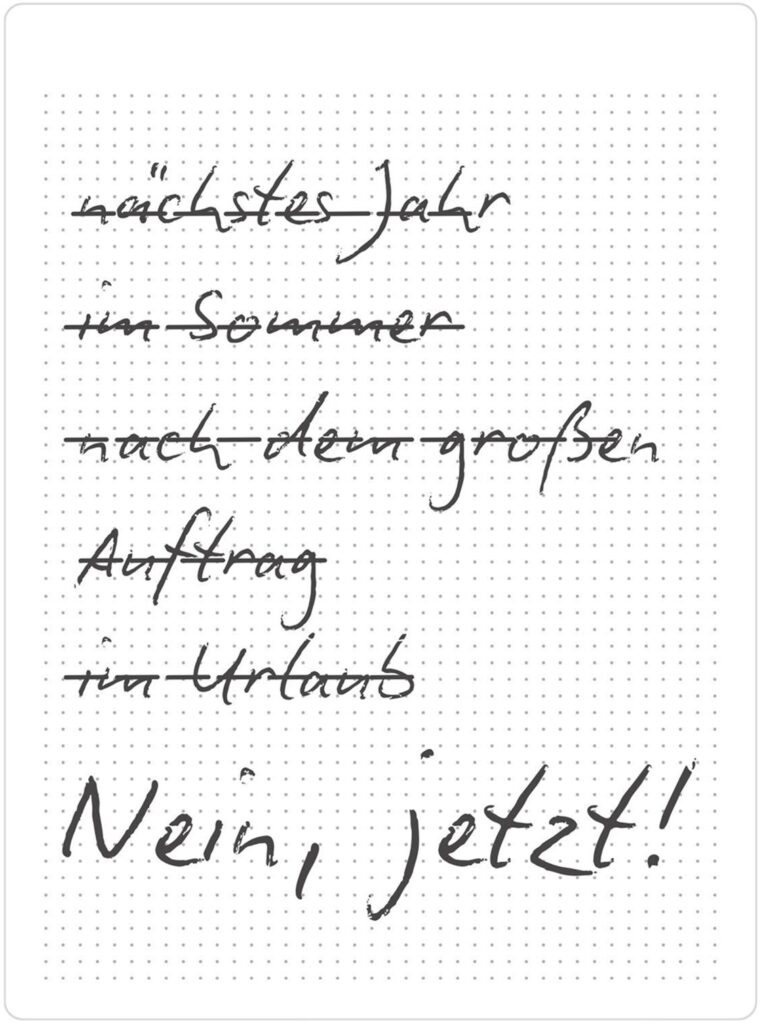 nächstes Jahr
im Sommer
nach dem großen
Auftrag
im Urlaub
Nein, jetzt!